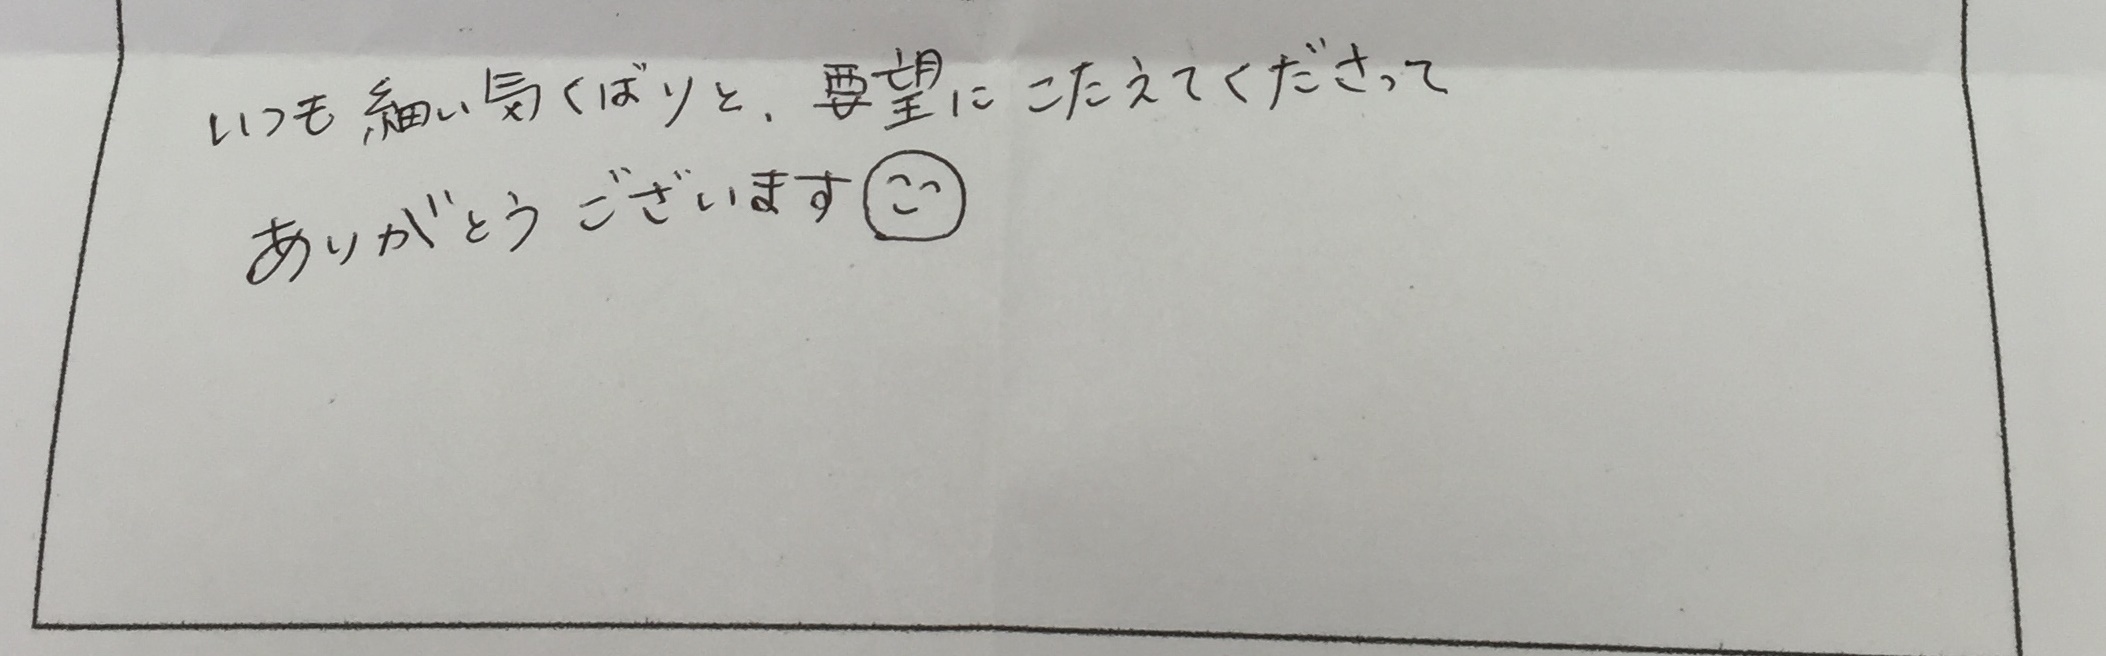 いつも細い気くばりと、要望にこたえてくださって
ありがとうございます